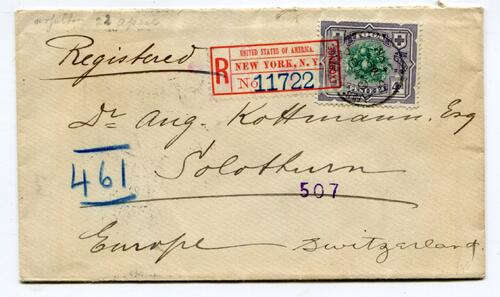 22 April
Registered
UNITED STATES OF AMERICA.
R NEW YORK, N.Y.
No. 11722
Dr. Aug. Kottmann, Esq
Solothurn
461
507
Europe Switzerland.